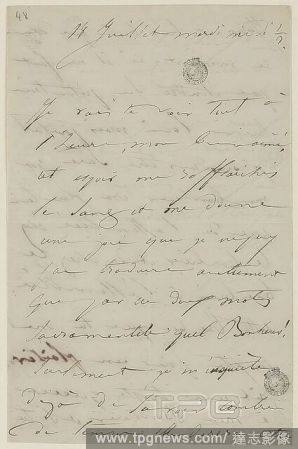 48
14 Juillet mardi midi ½
Je vais te voir tout à
l'heure, mon bien aimé,
cet espoir me rafraîchit
le sang et me donne
une joie que je ne puis
traduire autrement
que par ces deux mots
sacramentels quel Bonheur!
Seulement je m'inquiète
déjà de
de
TPG
www.tpgnews.com/達志影像